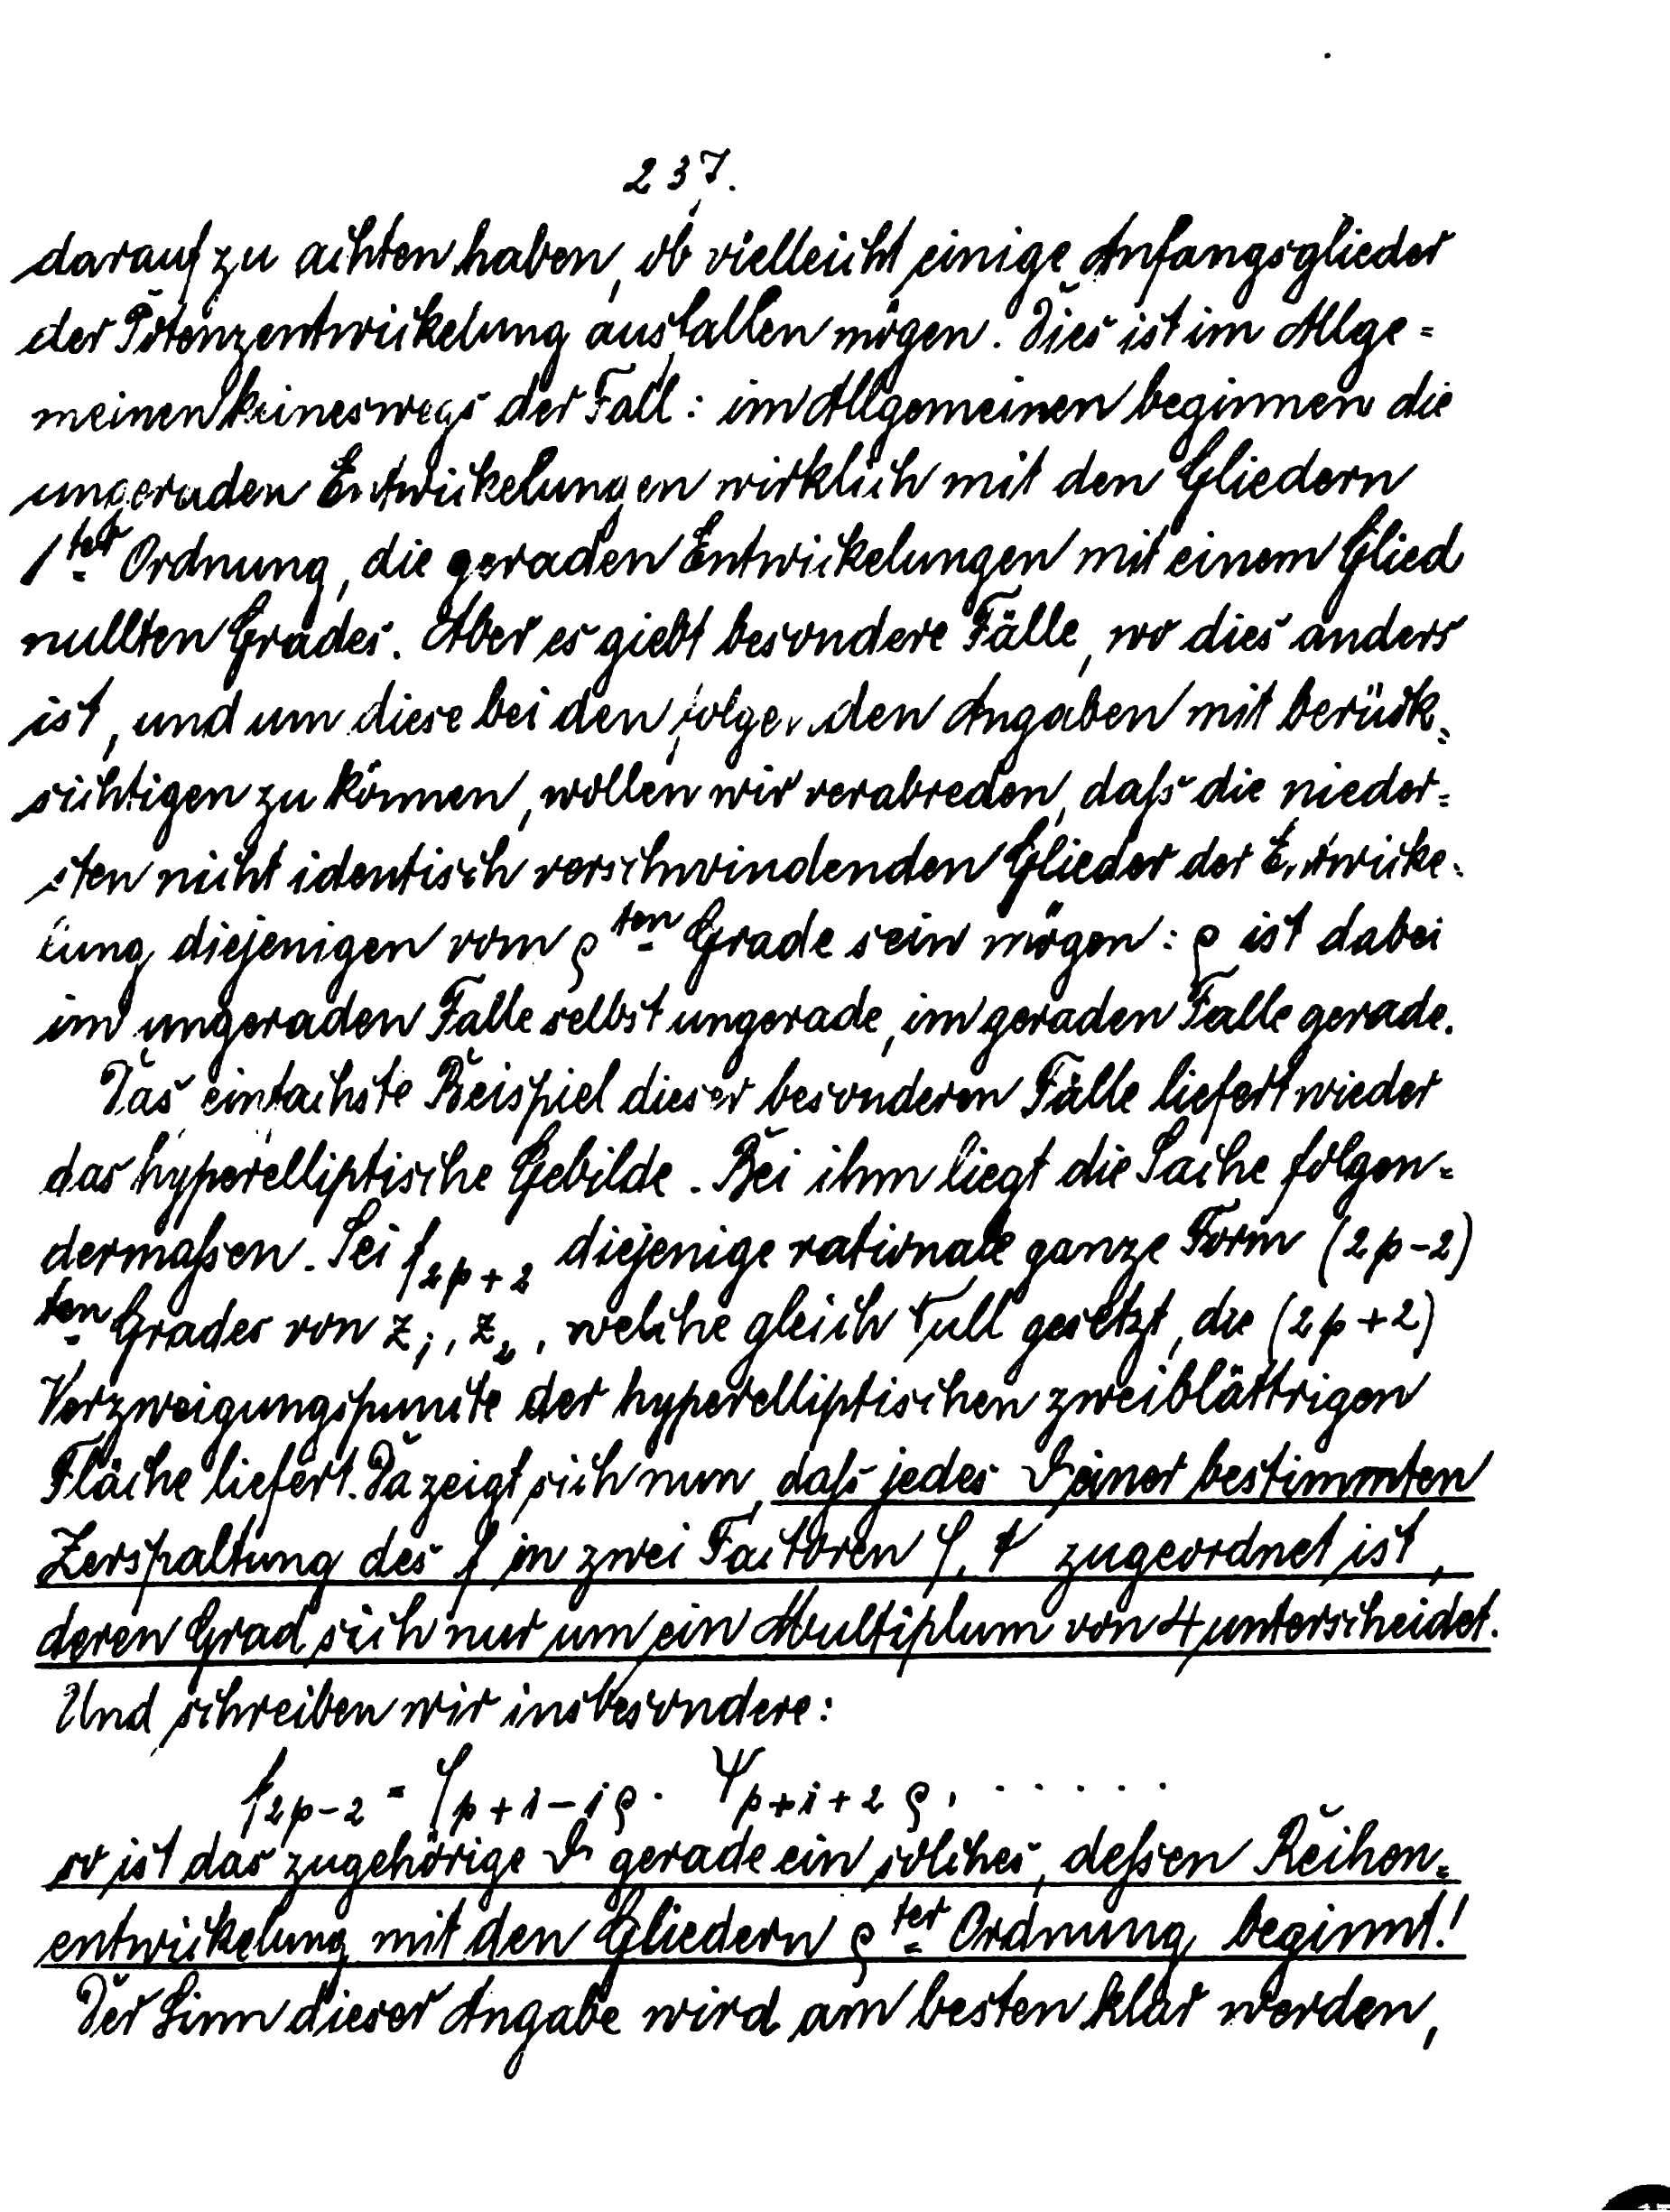 237.
darauf zu achten haben, ob vielleicht einige Anfangsglieder
der Potenzentwickelung ausfallen mögen. Dies ist im Allge=
meinen keineswegs der Fall: im Allgemeinen beginnen die
ungeraden Entwickelungen wirklich mit den Gliedern
1ter Ordnung, die geraden Entwickelungen mit einem Glied
nullten Grades. Aber es giebt besondere Fälle, wo dies anders
ist, und um diese bei den folgenden Angaben mit berück=
sichtigen zu können, wollen wir verabreden, daß die nieder=
sten nicht identisch verschwindenden Glieder der Entwicke=
lung diejenigen vom ρten Grade sein mögen: ρ ist dabei
im ungeraden Falle selbst ungerade, im geraden Falle gerade.
Das einfachste Beispiel dieser besonderen Fälle liefert wieder
das hyperelliptische Gebilde. Bei ihm liegt die Sache folgen=
dermaßen. Sei f2p+2 diejenige rationale ganze Form (2p-2)
ten Grades von z1, z2, welche gleich Null gesetzt, die (2p+2)
Verzweigungspunkte der hyperelliptischen zweiblättrigen
Fläche liefert. Da zeigt sich nun, daß jedes ϑ einer bestimmten
Zerspaltung des f in zwei Factoren φ, ψ zugeordnet ist,
deren Grad sich nur um ein Multiplum von 4 unterscheidet.
Und schreiben wir insbesondere:
f2p-2 = φp+1-iρ · ψp+1+2ρ, . . . . . .
so ist das zugehörige ϑ gerade ein solches, deßen Reihen=
entwickelung mit den Gliedern ρter Ordnung beginnt!
Der Sinn dieser Angabe wird am besten klar werden,